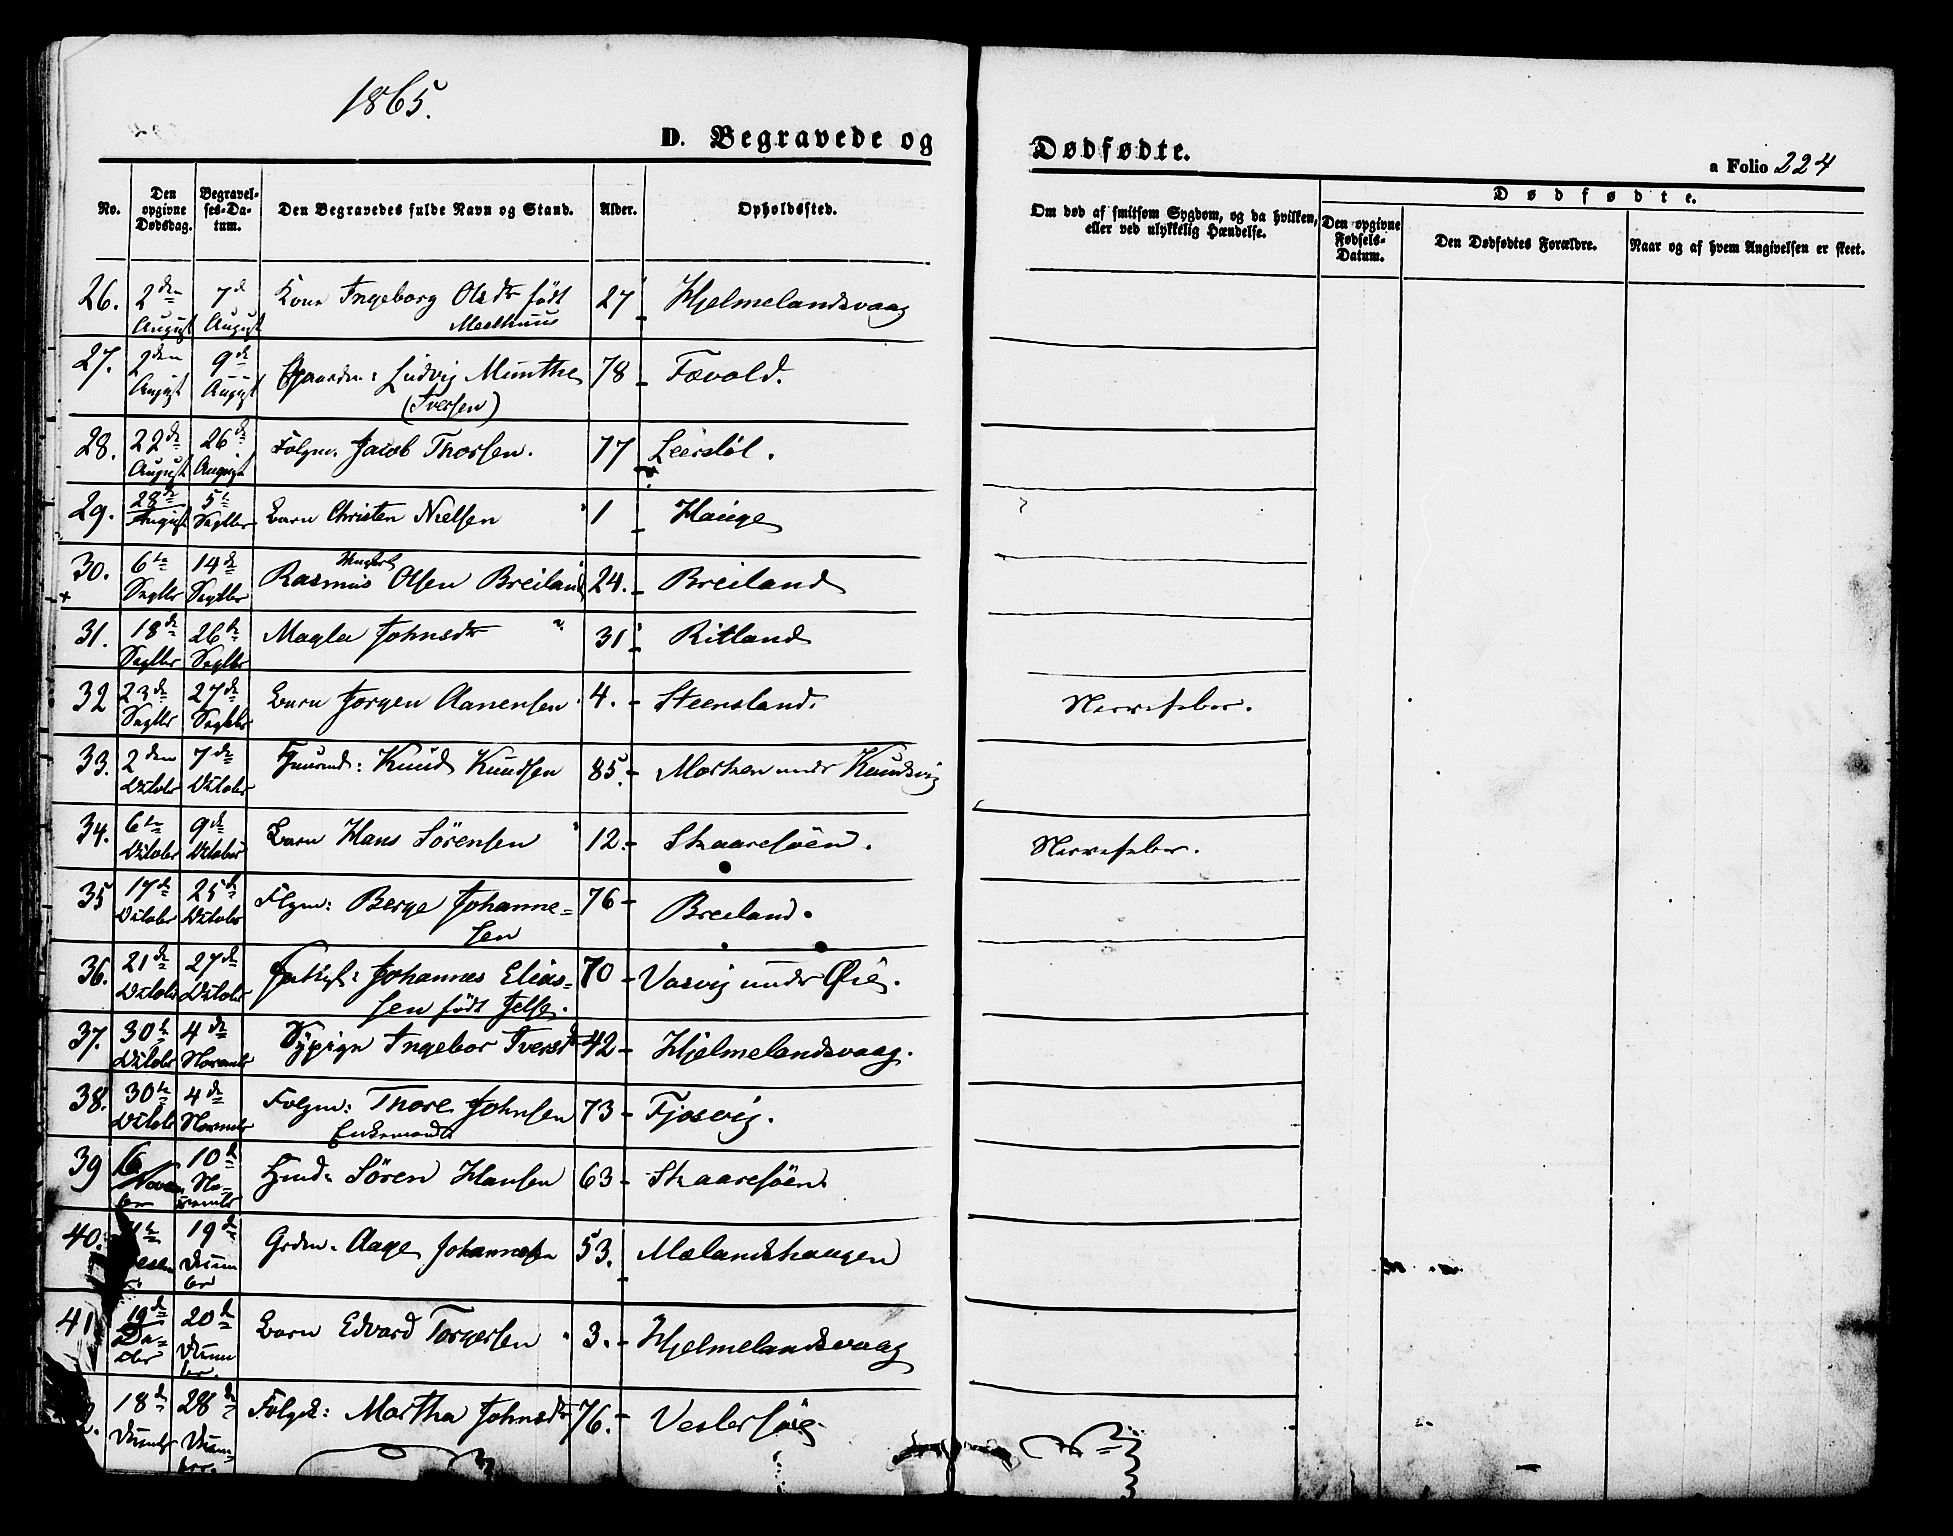 1865.
D. Begravede og
Dødfødte.
a Folio 224
No.
Den opgivne Dødsdag.
Begravel-
ses-Da-
tum.
Den Begravedes fulde Navn og Stand.
Alder.
Opholdssted.
Om død af smitsom Sygdom, og da hvilken,
eller ved ulykkelig Hændelse.
Dødfødte.
Den opgivne
Fødsels-
Datum.
Den Dødfødtes Forældre.
Naar og af hvem Angivelsen er skeet.
26. 2den August 7de August Kone Ingeborg Olsdtr født 27 Hjelmelandsvaag
27. 2den August 9de August Gaardm: Ludvig Munthe 78 Tævold.
(Iversen)
28. 22de August 26de August Folgm. Jacob Thorsen. 77
29. 28de August 5te Septbr Barn Christen Nielsen 1 Hauge
30. 6te Septbr 14de Septbr Rasmus Olsen Breiland 24. Breiland
31. 18de Septbr 26te Septbr Magla Johnsdtr 31 Ritland
32 23de Septbr 27de Septbr Barn Jørgen Aanensen 4. Steensland. Nervefeber.
33. 2den Octobr 7de Octobr Knud Knudsen 85. under Knudsvig
34. 6te Octobr 9de Octobr Barn Hans Sörensen 12 Skaaresöen. Nervefeber.
35 17de Octobr 25de Octobr Flgm: Berge Johanne=
sen 76 Breiland.
36. 21de Octobr 27de Octobr Johannes Elias=
sen født Jelse. 70 Vasvig under Øie.
37. 30te Octobr 4de Novembr Ingebor Iversdtr 42 Hjelmelandsvaag.
38. 30te Octobr 4de Novembr Folgm: Thore Johnsen 73 Fjosvig.
Enkemand
39 6 Novem
ber 10de No-
vembr Sören Hansen 63 Skaaresöen.
40. 19de Decem
ber Grdm. Aage Johannesen 53. Mælandshaugen
41 19de De-
cbr 20de Decem
ber. Barn Edvard Torgersen 3. Hjelmelandsvaag
2. 18de Decembr 28de Decem
ber. Folgek: Martha Johnsdtr 76.